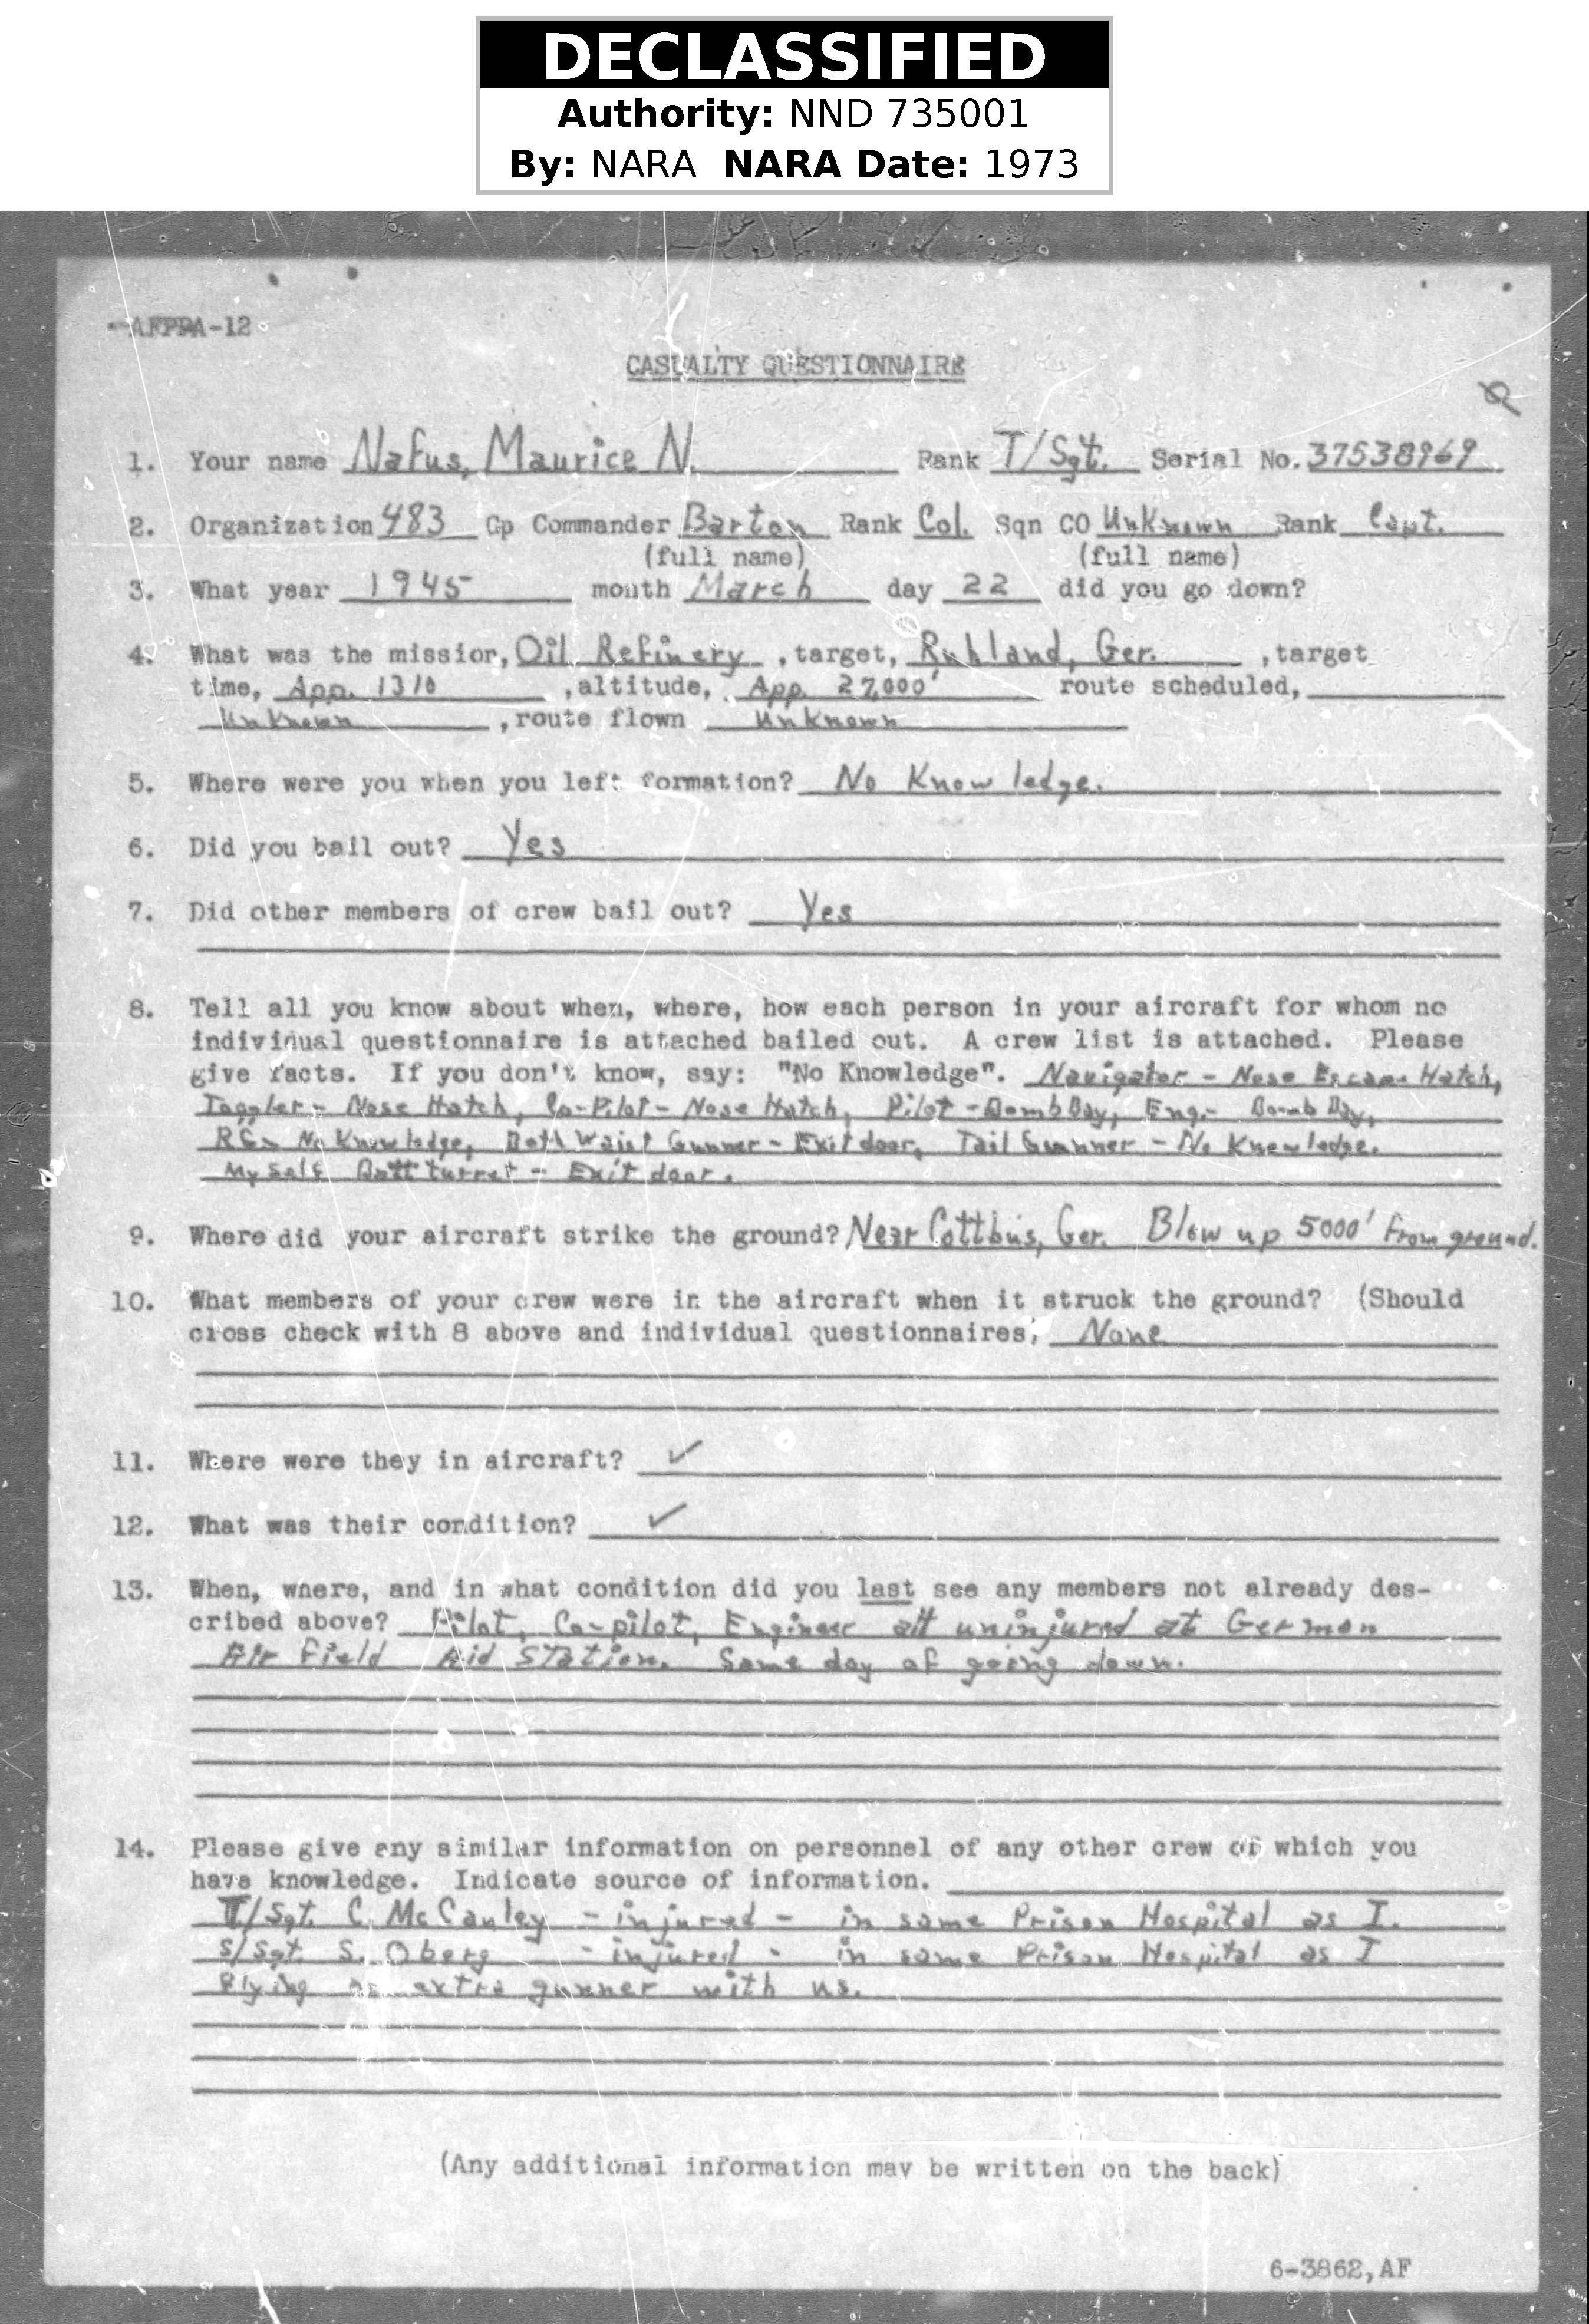 DECLASSIFIED
Authority: NND 735001
By: NARA NARA Date: 1973
AFPPA-12
CASUALTY QUESTIONNAIRE
1. Your name Nafus, Maurice N. Rank T/Sgt. Serial No. 37538969
2. Organization 483 Gp Commander Barton Rank Col. Sqn CO Unknown Rank Capt.
(full name) (full name)
3. What year 1945 month March day 22 did you go down?
4. What was the mission, Oil Refinery , target, Ruhland, Ger. , target
time, App. 1310 , altitude, App. 27,000' route scheduled,
Unknown , route flown Unknown
5. Where were you when you left formation? No Knowledge.
6. Did you bail out? Yes
7. Did other members of crew bail out? Yes
8. Tell all you know about when, where, how each person in your aircraft for whom no
individual questionnaire is attached bailed out. A crew list is attached. Please
give facts. If you don't know, say: "No Knowledge". Navigator - Nose Escape Hatch,
Toggler - Nose Hatch, Co-Pilot - Nose Hatch, Pilot - Bomb Bay, Eng. - Bomb Bay,
No Knowledge, Both Waist Gunner - Exit door, Tail Gunner - No Knowledge.
Myself Ball turret - Exit door.
9. Where did your aircraft strike the ground? Near Cottbus, Ger. Blew up 5000' from ground.
10. What members of your crew were in the aircraft when it struck the ground? (Should
cross check with 8 above and individual questionnaires) None
11. Where were they in aircraft? ✓
12. What was their condition? ✓
13. When, where, and in what condition did you last see any members not already des-
cribed above? Pilot, Co-pilot, Engineer all uninjured at German
Air Field Aid Station. Same day of going down.
14. Please give any similar information on personnel of any other crew of which you
have knowledge. Indicate source of information.
T/Sgt. C. McCauley - injured - in same Prison Hospital as I.
S/Sgt. S. Oberg - injured - in same Prison Hospital as I
Flying as extra gunner with us.
(Any additional information may be written on the back)
6-3862, AF